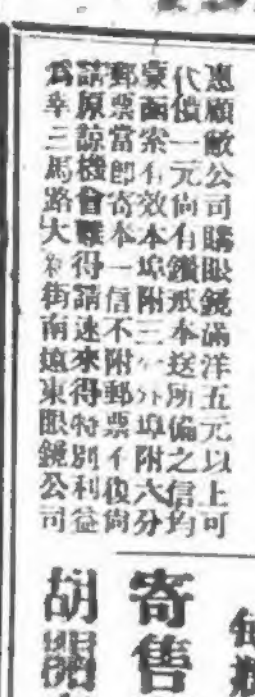 惠顧敝公司購眼鏡滿洋五元以上可
代價一元尚有鑽戒本送所備之信均
蒙函索有效本埠附三分外埠附六分
郵票當即寄奉一信不附郵票不復尚
請原諒機會難得請速來得特別利益
爲幸三馬路大新街南遠東眼鏡公司
寄售
胡開